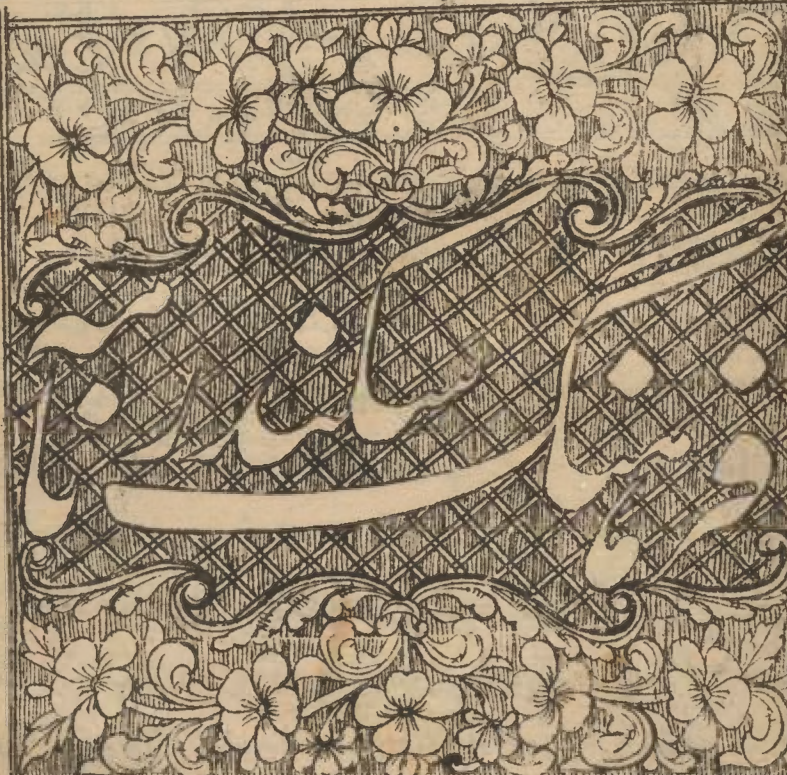 فرہنگ سکندر نامہ